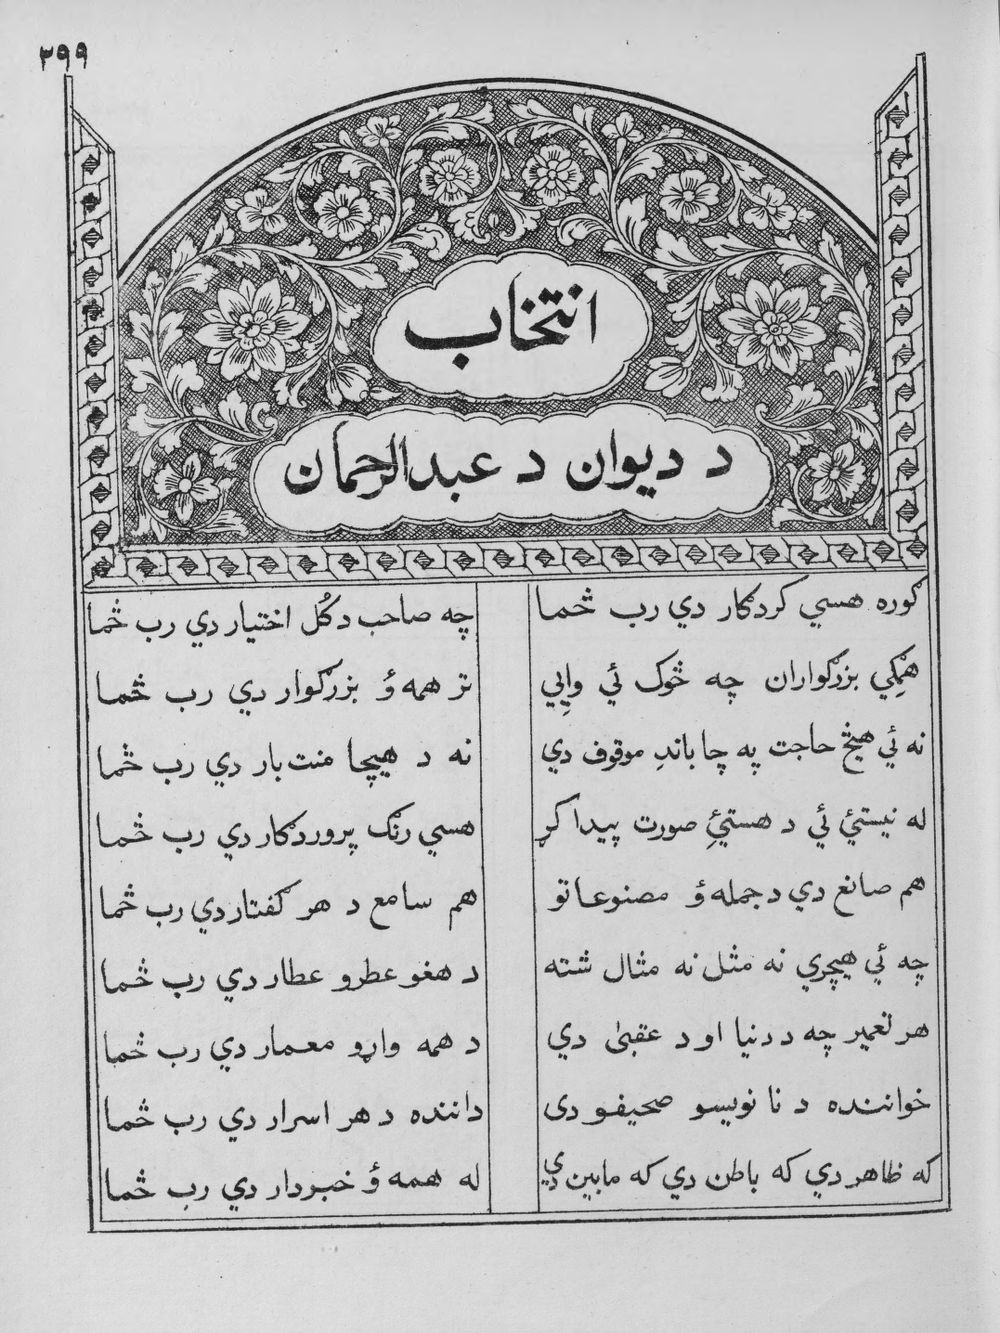 ۳۹۹
انتخاب
د ديوان د عبدالرحمان
ګوره هسي کردګار دي رب څما
چه صاحب د کُل اختيار دي رب څما
همګي بزرګواران چه څوک ئي وايي
تر همه ؤ بزرګوار دي رب څما
نه ئي هيڅ حاجت په چا باندِ موقوف دي
نه د هيچا منت بار دي رب څما
له نيستئ ئي د هستئِ صورت پيدا کړ
هسي رنګ پروردګار دي رب څما
هم صانع دي د جمله ؤ مصنوعاتو
هم سامع د هر ګفتار دي رب څما
چه ئي هيچري نه مثل نه مثال شته
د هغو عطرو عطار دي رب څما
هر تعمير چه د دنيا او د عقبیٰ دي
د همه واړو معمار دي رب څما
خواننده د نا نويسو صحيفو دی
داننده د هر اسرار دي رب څما
که ظاهر دي که باطن دي که مابين دي
له همه ؤ خبردار دي رب څما